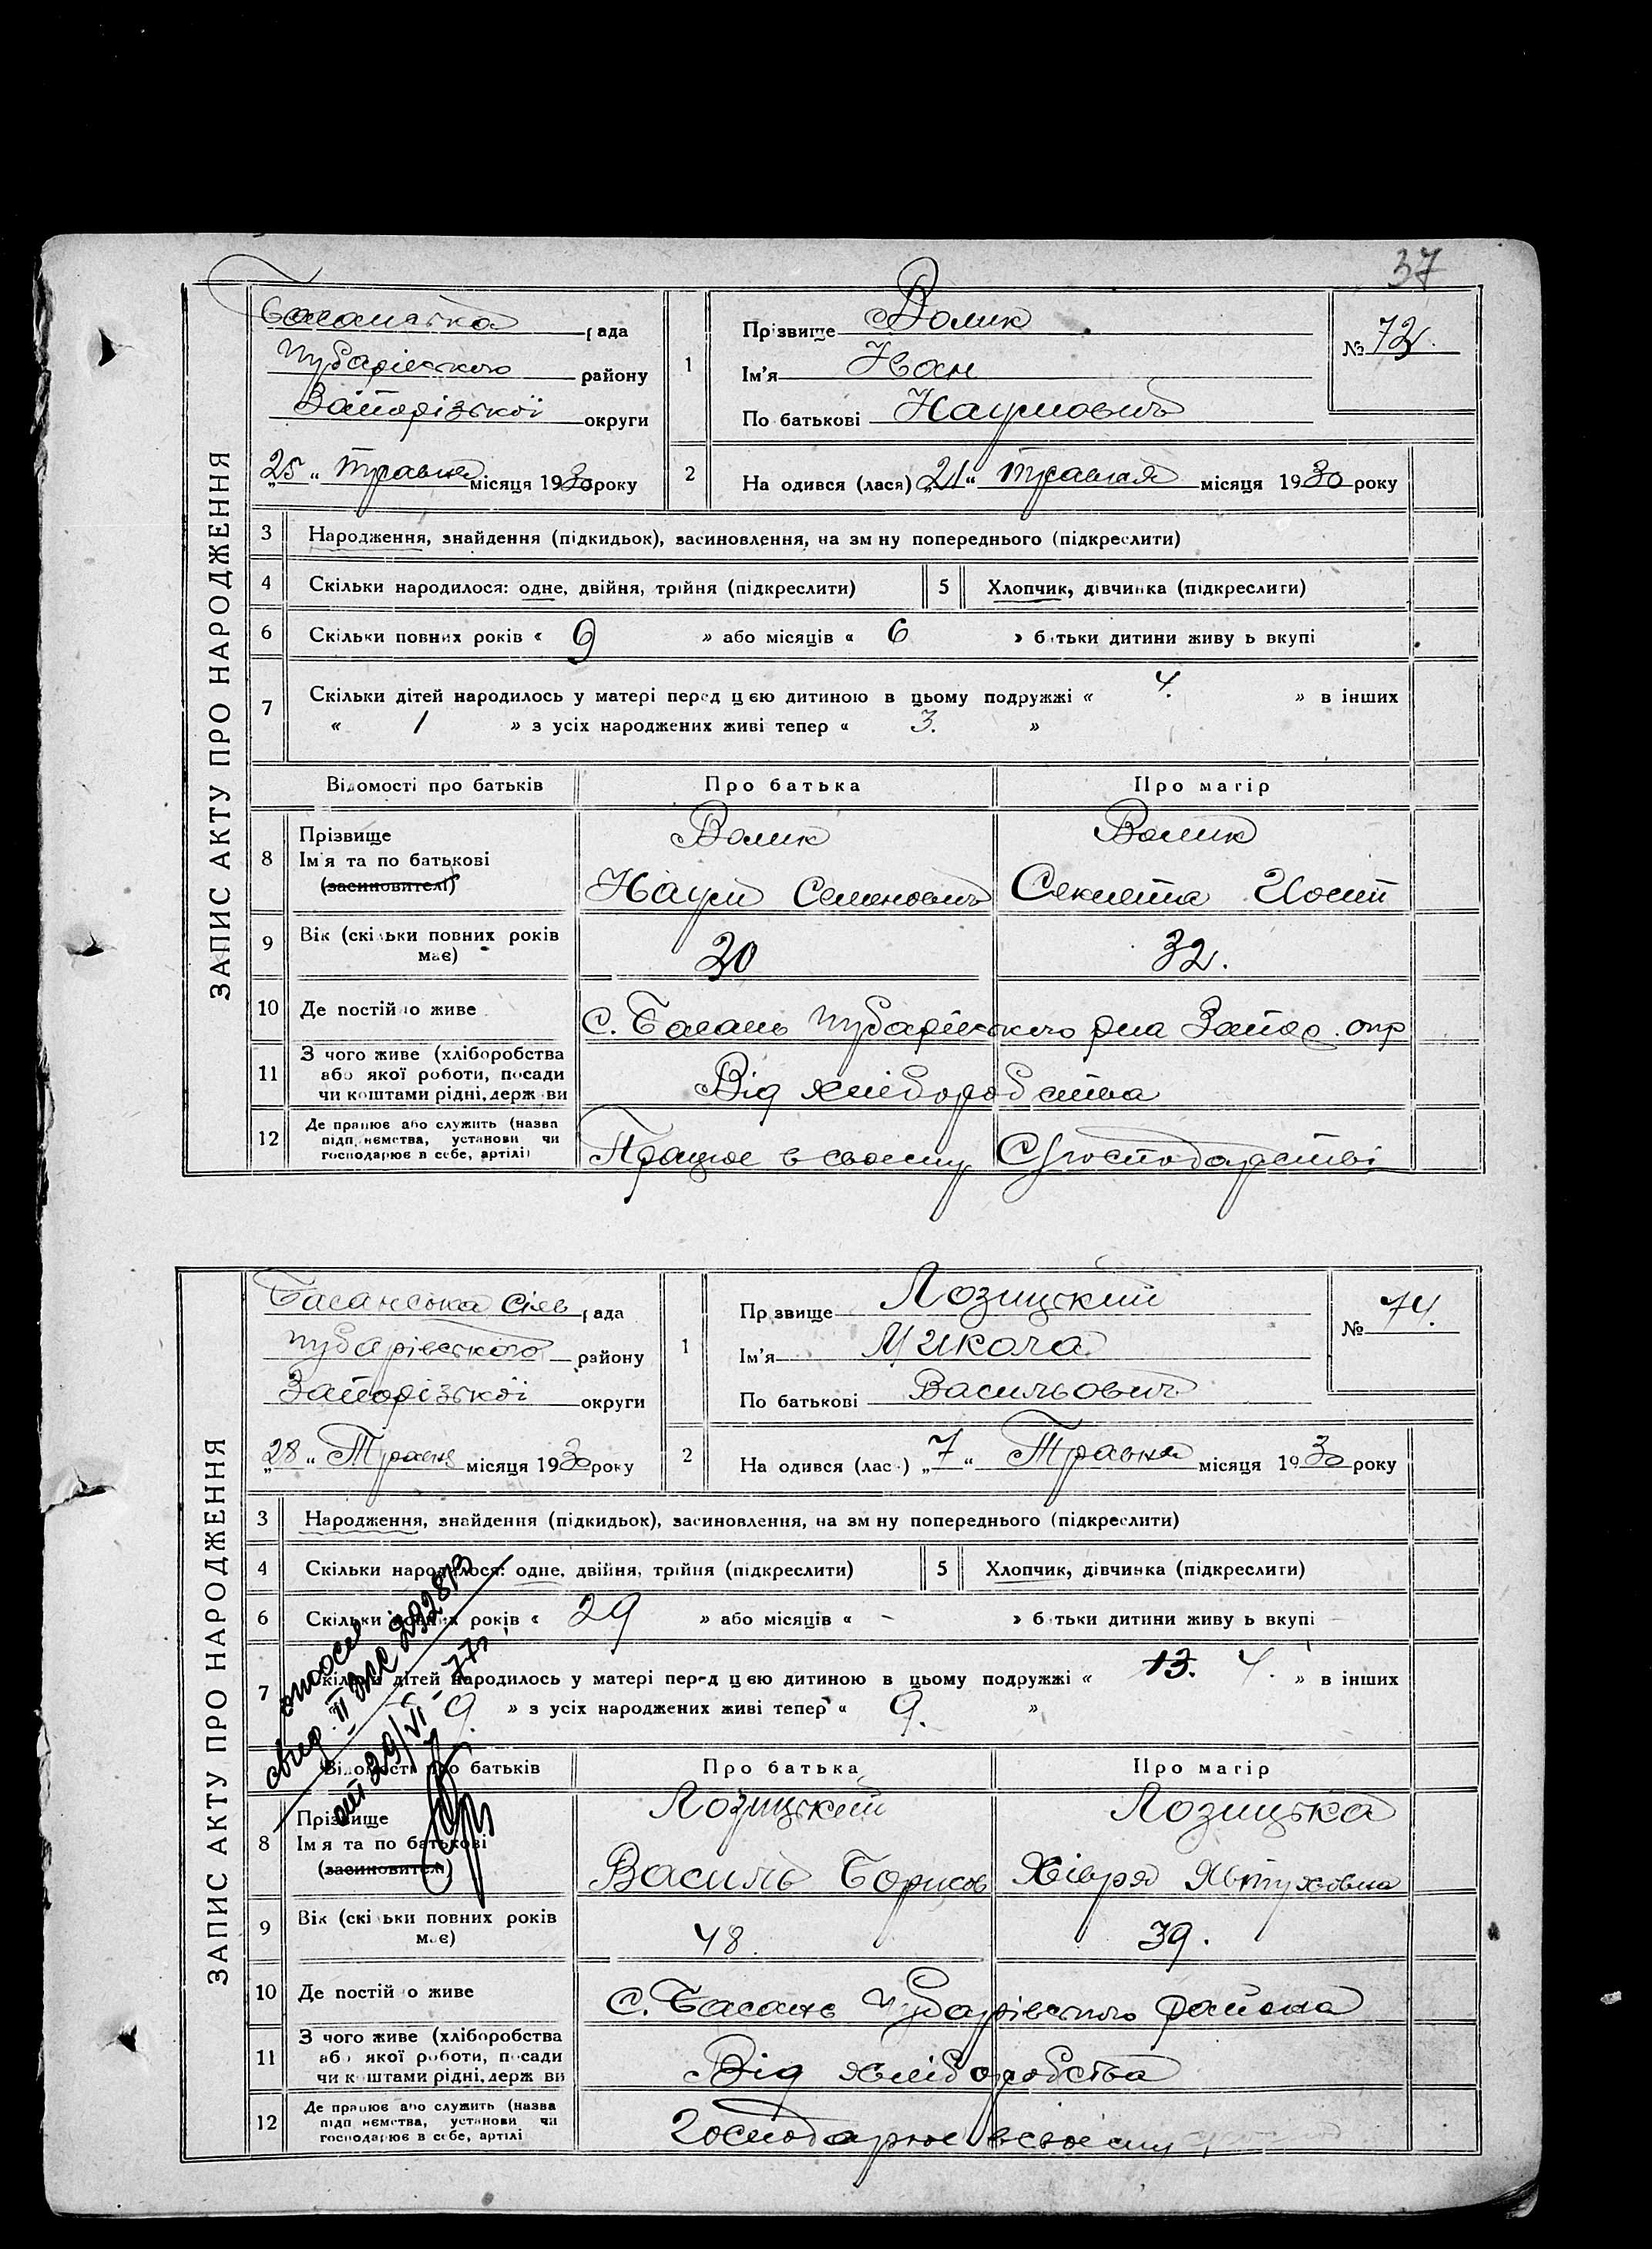 37
ЗАПИС АКТУ ПРО НАРОДЖЕННЯ
Басанська рада
Чубарівского району
Запорізської округи
„25“ травня місяця 1930 року
1 Прізвище Волик
Ім'я Іван
По батькові Наумович
№ 72.
2 На одився (лася) „21“ травня місяця 1930 року
3 Народження, знайдення (підкидьок), засиновлення, на зм ну попереднього (підкреслити)
4 Скільки народилося: одне, двійня, трійня (підкреслити) 5 Хлопчик, дівчинка (підкреслити)
6 Скільки повних років « 9 » або місяців « 6 » б тьки дитини живу ь вкупі
7 Скільки дітей народилось у матері перед цією дитиною в цьому подружжі « 4. » в інших
« 1 » з усіх народжених живі тепер « 3. »
Відомості про батьків Про батька Про матір
8 Прізвище Волик Волик
Ім'я та по батькові
(засиновителі) Наум Семенович Секлета Иосип
9 Вік (скільки повних років має) 30 32.
10 Де постій о живе с. Басань Чубарівського рна Запор. окр
11 З чого живе (хліборобства
або якої роботи, посади
чи коштами рідні, держ ви Від хліборобства
12 Де працює або служить (назва
підп иємства, установи чи
господарює в себе, артілі) Працює в своєму Господарстві
ЗАПИС АКТУ ПРО НАРОДЖЕННЯ
Басанська сіль рада
Чубарівського району
Запорізської округи
„28“ Травня місяця 1930 року
1 Пр звище Лозицький
Ім'я Микола
По батькові Васильович
№ 74.
2 На одився (лас ) „7“ Травня місяця 1930 року
3 Народження, знайдення (підкидьок), засиновлення, на зм ну попереднього (підкреслити)
4 Скільки народилося: одне, двійня, трійня (підкреслити) 5 Хлопчик, дівчинка (підкреслити)
6 Скільки повних років « 29 » або місяців « - » б тьки дитини живу ь вкупі
7 Скільки дітей народилось у матері перед цією дитиною в цьому подружжі « 13. 4. » в інших
« 9. » з усіх народжених живі тепер « 9. »
свид. II ЖС 392873
от 29/VI-77г.
Відомості про батьків Про батька Про матір
8 Прізвище Лозицький Лозицька
Ім'я та по батькові
(засиновителі) Василь Борисов Хівря Явтухівна
9 Вік (скі ьки повних років м є) 48. 39.
10 Де постій о живе с. Басань Чубарівського района
11 З чого живе (хліборобства
аб якої роботи, посади
чи к штами рідні, держ ви Від хліборобства
12 Де працює або служить (назва
підп иємства, установи чи
господарює в себе, артілі Господарює в своєму